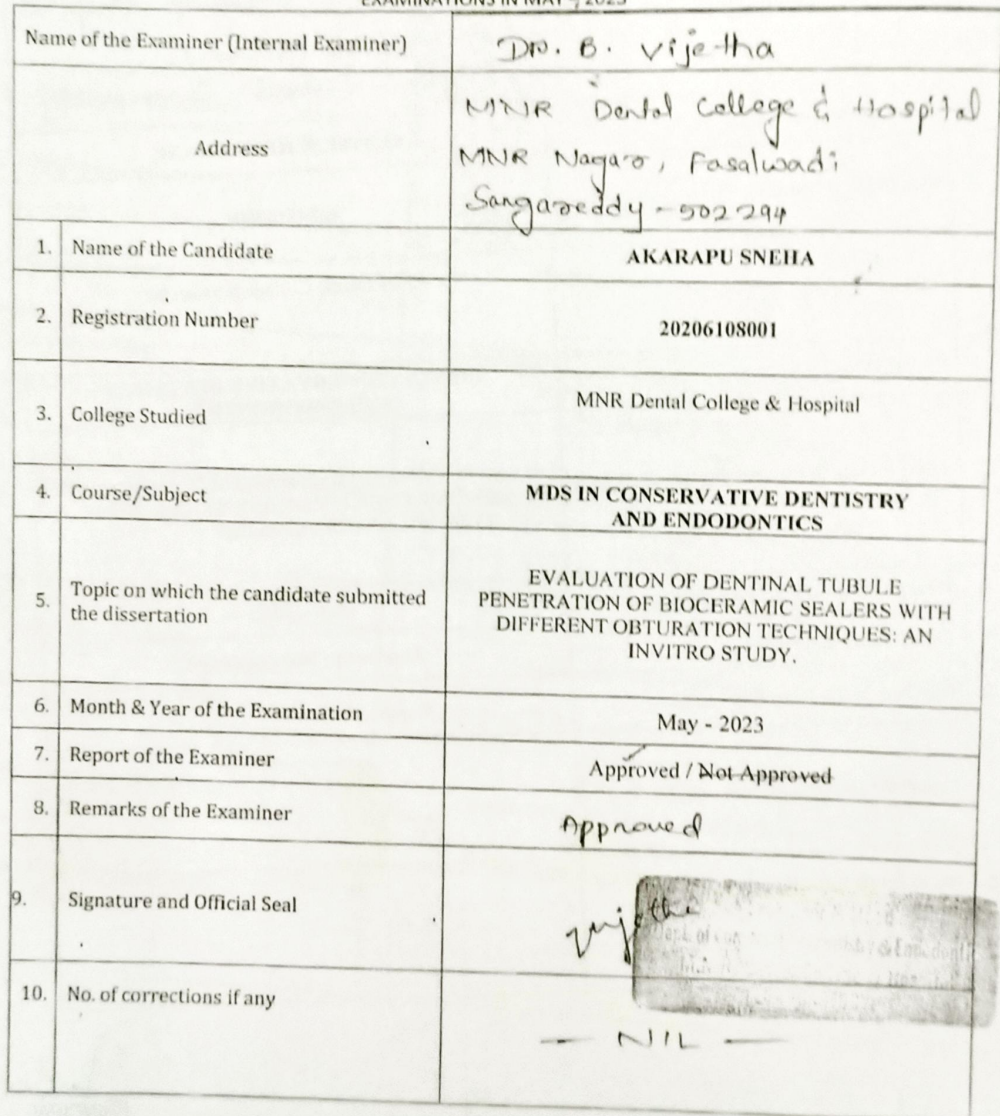 EXAMINATIONS IN MAY - 2023
Name of the Examiner (Internal Examiner)
Dr. B. Vijetha
Address
MNR Dental College & Hospital
MNR Nagar, Fasalwadi
Sangareddy - 502294
1. Name of the Candidate
AKARAPU SNEHA
2. Registration Number
20206108001
3. College Studied
MNR Dental College & Hospital
4. Course/Subject
MDS IN CONSERVATIVE DENTISTRY
AND ENDODONTICS
5. Topic on which the candidate submitted
the dissertation
EVALUATION OF DENTINAL TUBULE
PENETRATION OF BIOCERAMIC SEALERS WITH
DIFFERENT OBTURATION TECHNIQUES: AN
INVITRO STUDY.
6. Month & Year of the Examination
May - 2023
7. Report of the Examiner
Approved / Not Approved
8. Remarks of the Examiner
Approved
9. Signature and Official Seal
Vijetha
Dept. of
& Endodonti
10. No. of corrections if any
- NIL -